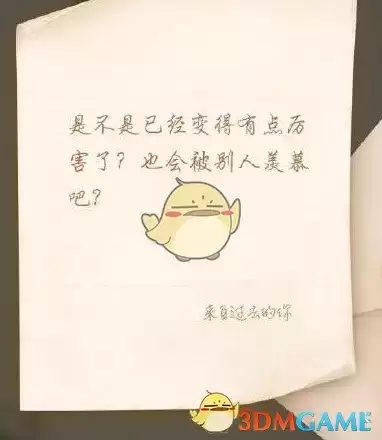 是不是已经变得有点厉
害了？也会被别人羡慕
吧？
来自过去的你
3DMGAME